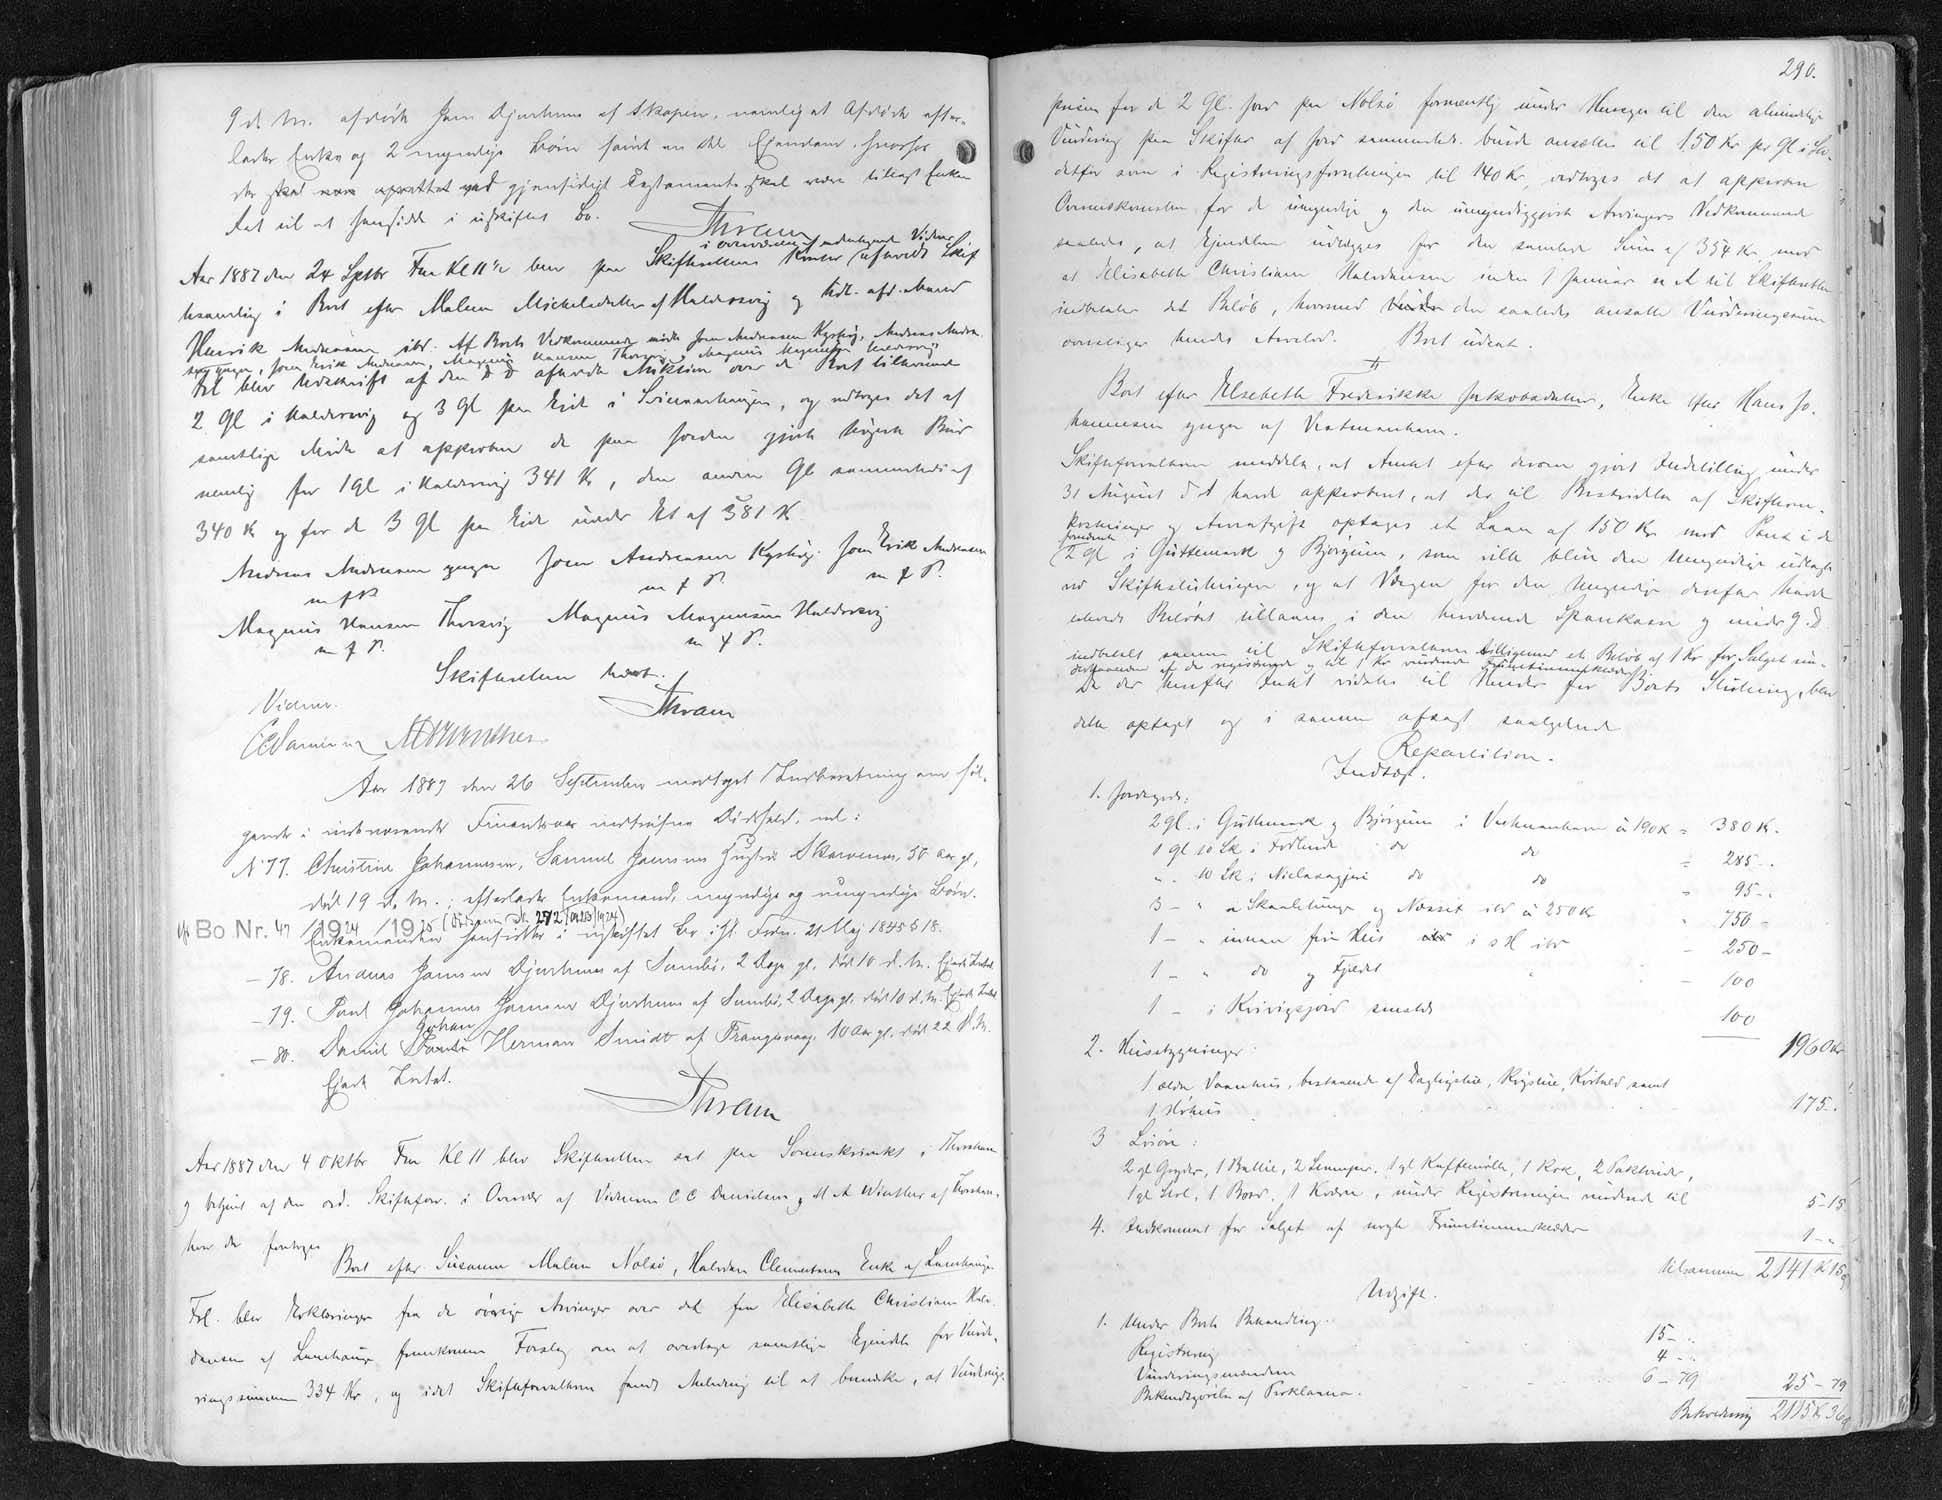 9 d. M. afdøde Jens Djurhuus af Skapen, nemlig at Afdøde efter-
lader Enke og 2 myndige Børn samt en Del Ejendom, hvorfor
der skal være oprettet ved gjensidigt Testamente skal være tillagt Enken
Ret til at hensidde i uskiftet Bo.
Thram
i Overværelse af undertegnede Vidner
Aar 1887 den 24 Septbr Fm Kl 11½ blev paa Skifterettens Kontor afholdt Skif
tesamling i Boet efter Malene Michelsdatter af Haldersvig og tidl. afd. Mand
Henrik Andreasen ibd. Af Boets Vedkommende mødte Joen Andreasen Kystvig, Andreas Andrea-
sen yngre, Joen Erik Andreasen, Magnus Hansen Thorsvig, Magnus Magnussen Haldersvig
Frl. blev Udskrift af den D D afholdte Auktion over de Boet tilhørende
2 Gl i Haldersvig og 3 Gl paa Eide i Sviennehaugen, og vedtoges det af
samtlige Mødte at approbere de paa Jorden gjorte høieste Bud
nemlig for 1 Gl i Haldersvig 341 Kr, den anden Gl sammesteds af
340 Kr og for de 3 Gl paa Eide under Et af 381 Kr
Andreas Andreasen yngre Joen Andreasen Kystvig. Joen Erik Andreasen
m f P. m f P. m f P.
Magnus Hansen Thorsvig Magnus Magnussen Haldersvig
m f P. m f P.
Skifteretten hævet.
Vidner. Thram
CCDanielsen MAWinther
Aar 1887 den 26 September modtoget Indberetning om føl-
gende i indeværende Finantsaar indtrufne Dødsfald, nl:
N 77. Christine Johannesen, Samuel Joensens Hustru Skarvenes, 50 Aar gl,
død 19 d. M.; efterlader Enkemand, myndige og umyndige Børn.
Bo Nr. 47/1924/1925
Enkemanden hensidder i uskiftet Bo i Hl. Frdn. 21 Maj 1845 § 18.
– 78. Andreas Joensen Djurhuus af Sumbø, 2 Dage gl. død 10 d. M. Ejede Intet
– 79. Poul Johannes Joensen Djurhuus af Sumbø, 2 Dage gl. død 10 d. M. Ejede Intet
Johan
– 80. Daniel Herman Smidt af Trangisvaag, 10 Aar gl. død 22 d. M.
Ejede Intet.
Thram
Aar 1887 den 4 Oktbr Fm Kl 11 blev Skifteretten sat paa Sorenskriverkt i Thorshavn
og betjent af den ord. Skifteforv. i Overvær af Vidnerne C C Danielsen og M A Winther af Thorshavn,
hvor da foretoges
Boet efter Susanne Malene Nolsø, Halvdan Clementsens Enke af Lamhauge.
Frl. blev Erklæringer fra de øvrige Arvinger over det fra Elisabeth Christiane Halv-
dansen af Lamhauge fremkomne Forslag om at overtage samtlige Ejendele for Vurde-
ringssummen 334 Kr, og idet Skifteforvalteren fandt Anledning til at bemærke, at Vurderings-
290.
prisen for de 2 Gl. Jord paa Nolsø formentlig under Hensyn til den almindelige
Vurdering paa Skifter af Jord sammesteds burde ansættes til 150 Kr pr Gl i Ste-
detfor som i Registreringsforretningen til 140 Kr, vedtoges det at approbere
Overenskomsten for de umyndige og den umyndiggjorte Arvingers Vedkommende
saaledes, at Ejendelene udlægges for den samlede Sum af 354 Kr, mod
at Elisabeth Christiane Halvdansen inden 1 Januar n A til Skifteretten
indbetaler det Beløb, hvormed den saaledes ansatte Vurderingssum
overstiger hendes Arvelod. Boet udsat.
Boet efter Elsebeth Fredrikke Jakobsdatter, Enke efter Hans Jo-
hannesen yngre af Vestmanhavn.
Skifteforvalteren meddelte, at Amtet efter derom gjort Indstilling under
31 August d A havde approberet, at der til Bestridelse af Skifteom-
kostninger og Arveafgift optages et Laan af 150 Kr mod Pant i de
førnævnte
2 Gl i Guttemark og Bjørgum, som ville blive den Umyndige udlagte
ved Skifteslutningen, og at Værgen for den Umyndige derefter havde
erholdt Beløbet tillaans i den herværende Sparekasse og under g. D.
indbetalt samme til Skifteforvalteren tilligemed et Beløb af 1 Kr for Salget
af de registrerede og til 1 Kr vurderede Fruentimmerklæder
Da der herefter Intet vidstes til Hinder for Boets Slutning, blev
dette optaget og i samme afsagt saalydende
Repartition.
Indtægt.
1. Jordegods:
2 gl. i Guttemark og Bjørgum i Vestmanhavn à 190 K = 380 K.
1 gl 10 Sk i Fodlende do do = 285 - .
" - 10 Sk i Nielsasgjeri do do " 95 - .
3 - " a Skaaletunge og Næssit ibd à 250 K " 750 –
1 – " innan fur Hus i s H ibd – 250 –
1 – " do og Fjeldet " – 100
1 – i Kvivigsjord smstds 100
1960 Kr
2. Husebygninger:
1 ældre Vaanhus, bestaaende af Dagligstue, Rygstue, Kostald samt
1 Høhus 175 - .
3 Løsøre:
2 gl Gryder, 1 Ballie, 2 Lamper, 1 gl Kaffemølle, 1 Rok, 2 Sakbrider,
1 gl Stol, 1 Bord, 1 Kværn, under Registreringen vurderede til 5 - 15
4. Indkommet for Salget af nogle Fruentimmerklæder 1 - "
tilsammen 2141 K 15 ø
Udgift.
1. Under Boets Behandling.
Registrering 15 - "
Vurderingsmændene 4 - "
Bekendtgørelse af Proklama. 6 – 79 25 – 79
Behovedning 2115 K 36 ø